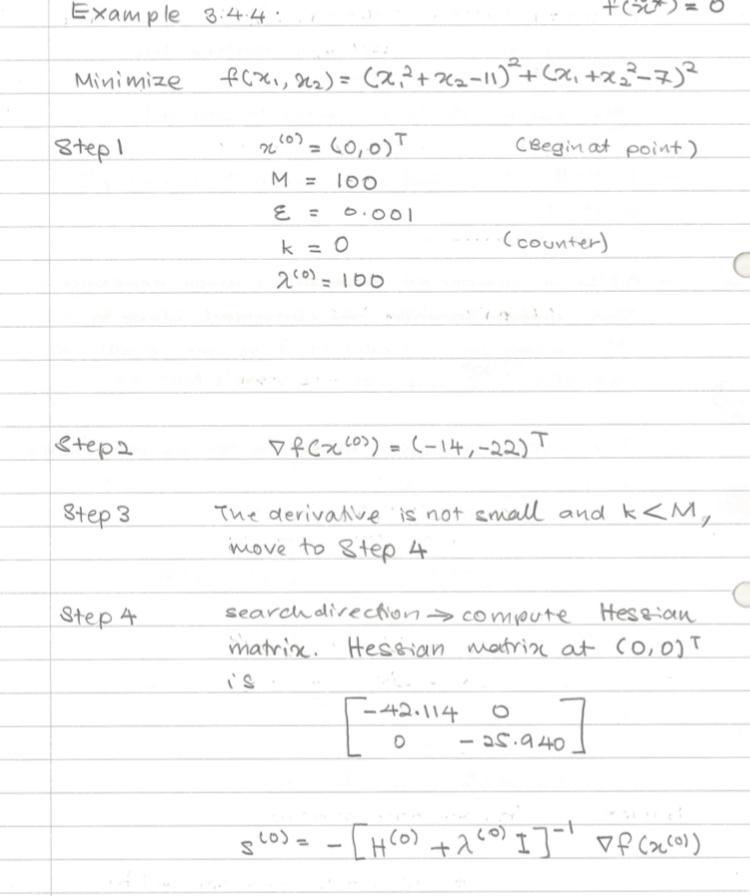 Example 3.4.4:
f(x*) = 0
Minimize f(x₁, x₂) = (x₁² + x₂ - 11)² + (x₁ + x₂² - 7)²
Step 1 x⁽⁰⁾ = (0,0)ᵀ (Begin at point)
M = 100
ε = 0.001
k = 0 ..... (counter)
λ⁽⁰⁾ = 100
Step 2 ∇f(x⁽⁰⁾) = (-14, -22)ᵀ
Step 3 The derivative is not small and k < M,
move to Step 4
Step 4 search direction → compute Hessian
matrix. Hessian matrix at (0,0)ᵀ
is
[-42.114 0
0 -25.940]
s⁽⁰⁾ = - [H⁽⁰⁾ + λ⁽⁰⁾ I]⁻¹ ∇f(x⁽⁰⁾)